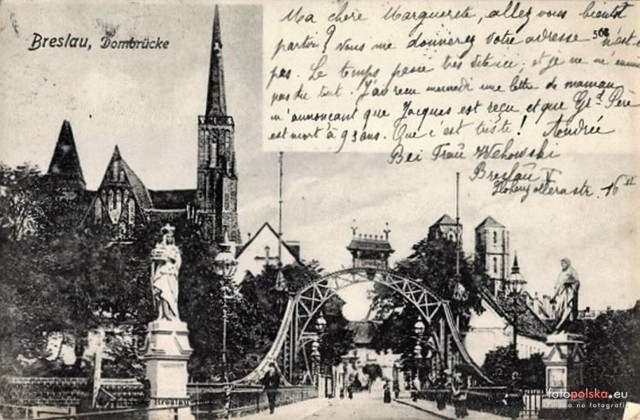 Breslau, Dombrücke
Ma chère Marguerite, allez vous bientôt
partir? Vous me donnerez votre adresse n'est-
508
pas. Le temps passe très vite ici et je ne m'ennuie
pas du tout. J'ai reçu mercredi une lettre de maman
m'annonçant que Jacques est reçu et que Gd. Père
est mort à 93 ans. Que c'est triste! Andrée
Bei Frau Wehowski
Breslau V
Hohenzollernstr. 16 III
fotopolska.eu